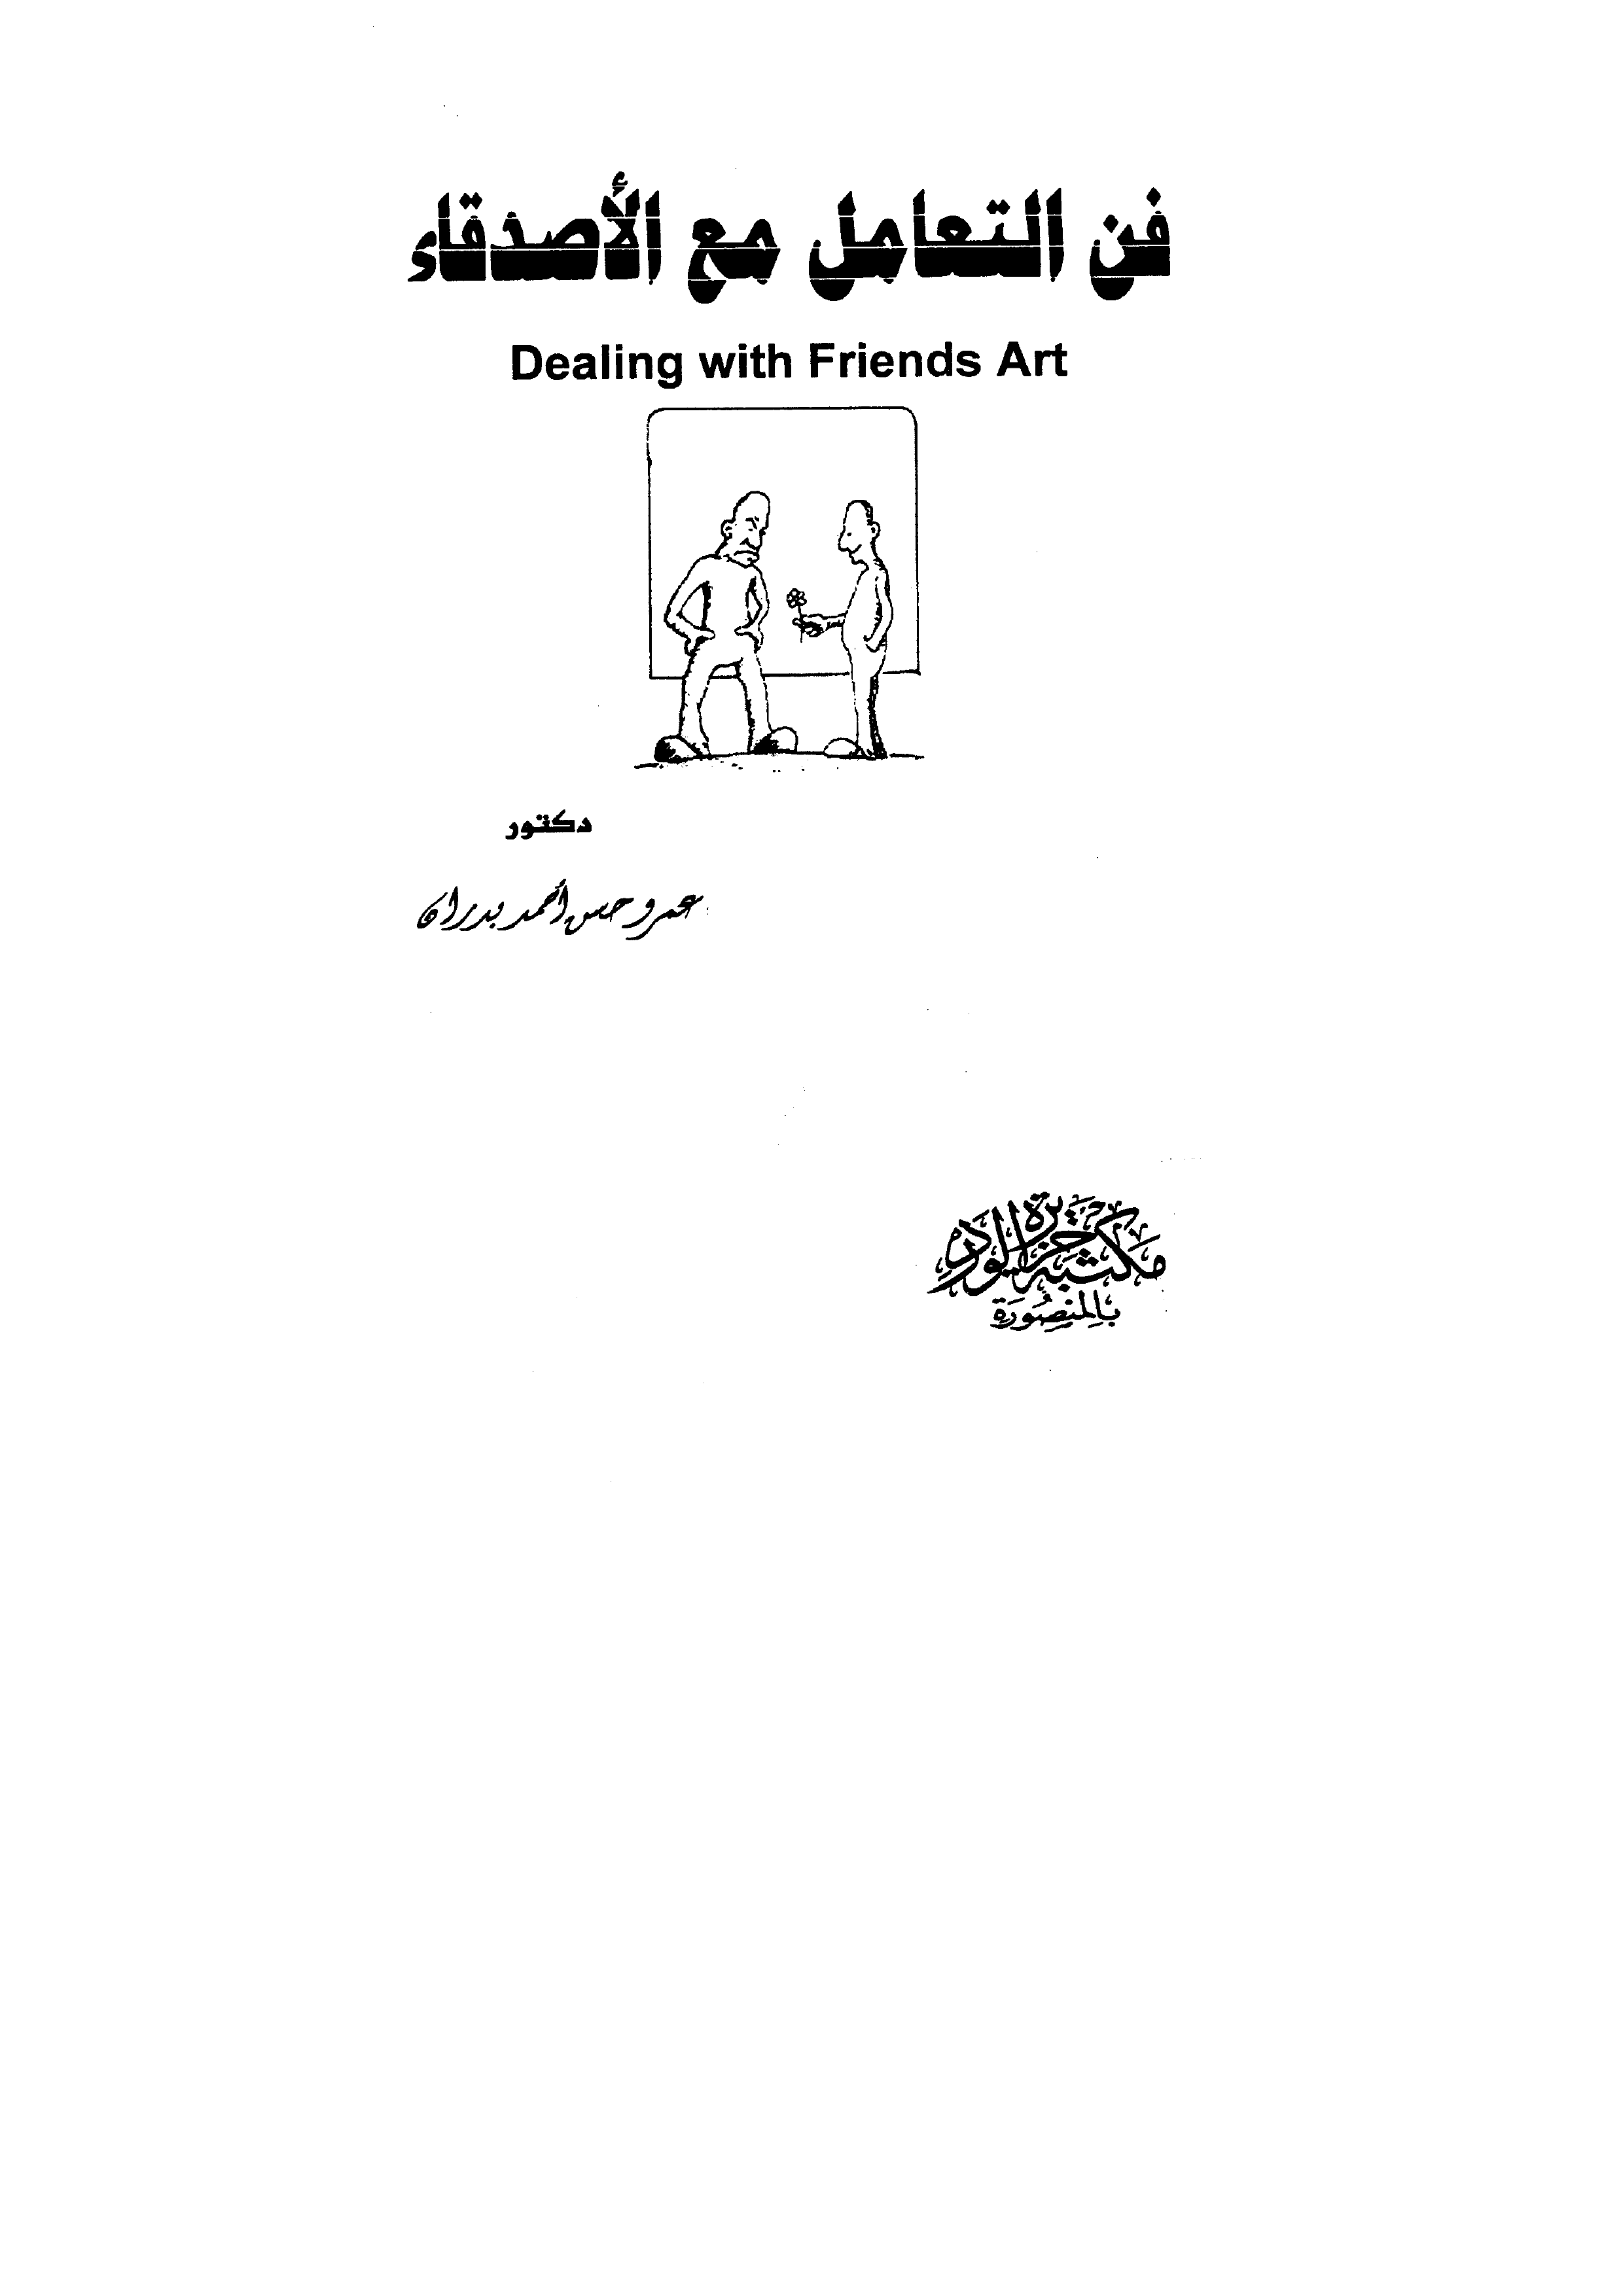 فن التعامل مع الأصدقاء
Dealing with Friends Art
دكتور
عمرو حسن أحمد بدران
مكتبة جزيرة الورد
بالمنصورة